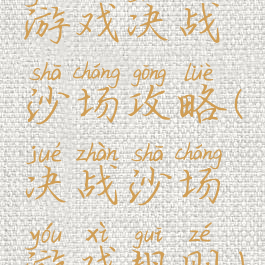 游戏决战
shā chǎng gōng lüè
沙场攻略(
jué zhàn shā chǎng
决战沙场
yóu xì guī zé
游戏规则)